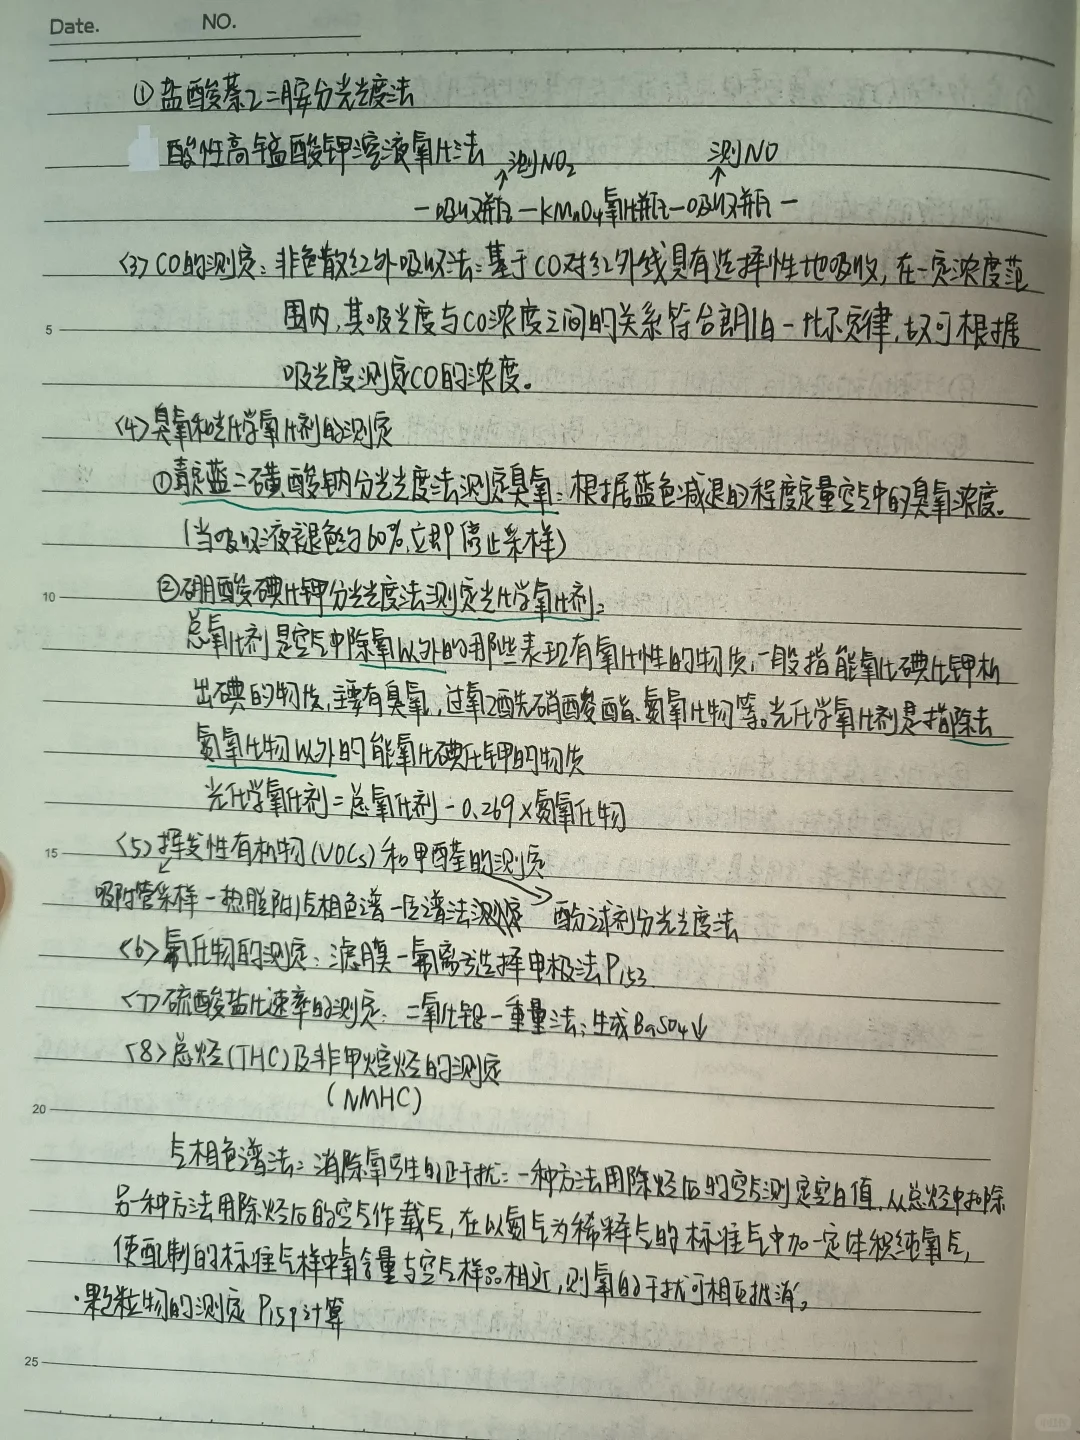 Date.
NO.
①盐酸萘乙二胺分光光度法
酸性高锰酸钾溶液氧化法
测NO₂
测NO
一吸收瓶一KMnO₄氧化瓶一吸收瓶一
<3>CO的测定:非色散红外吸收法:基于CO对红外线具有选择性地吸收,在一定浓度范
5
围内,其吸光度与CO浓度之间的关系符合朗伯一比尔定律,故可根据
吸光度测定CO的浓度。
<4>臭氧和光化学氧化剂的测定
①靛蓝二磺酸钠分光光度法测定臭氧:根据蓝色减退的程度定量空气中的臭氧浓度。
(当吸收液褪色约60%,立即停止采样)
10
②硼酸碘化钾分光光度法测定光化学氧化剂:
总氧化剂是空气中除氧以外的那些表现有氧化性的物质,一般指能氧化碘化钾析
出碘的物质,主要有臭氧、过氧乙酰硝酸酯、氮氧化物等。光化学氧化剂是指除去
氮氧化物以外的能氧化碘化钾的物质
光化学氧化剂=总氧化剂-0.269×氮氧化物
15
<5>挥发性有机物(VOCs)和甲醛的测定
吸附管采样一热脱附/气相色谱一质谱法测定
酚试剂分光光度法
<6>氟化物的测定:滤膜一氟离子选择电极法P153
<7>硫酸盐化速率的测定:二氧化铅一重量法:生成BaSO₄↓
<8>总烃(THC)及非甲烷烃的测定
(NMHC)
20
气相色谱法:消除氧产生的正干扰:一种方法用除烃后的空气测定空白值,从总烃中扣除
另一种方法用除烃后的空气作载气,在以氮气为稀释气的标准气中加一定体积纯氧气,
使配制的标准气样中氧含量与空气样品相近,则氧的干扰可相互抵消。
·颗粒物的测定 P159计算
25